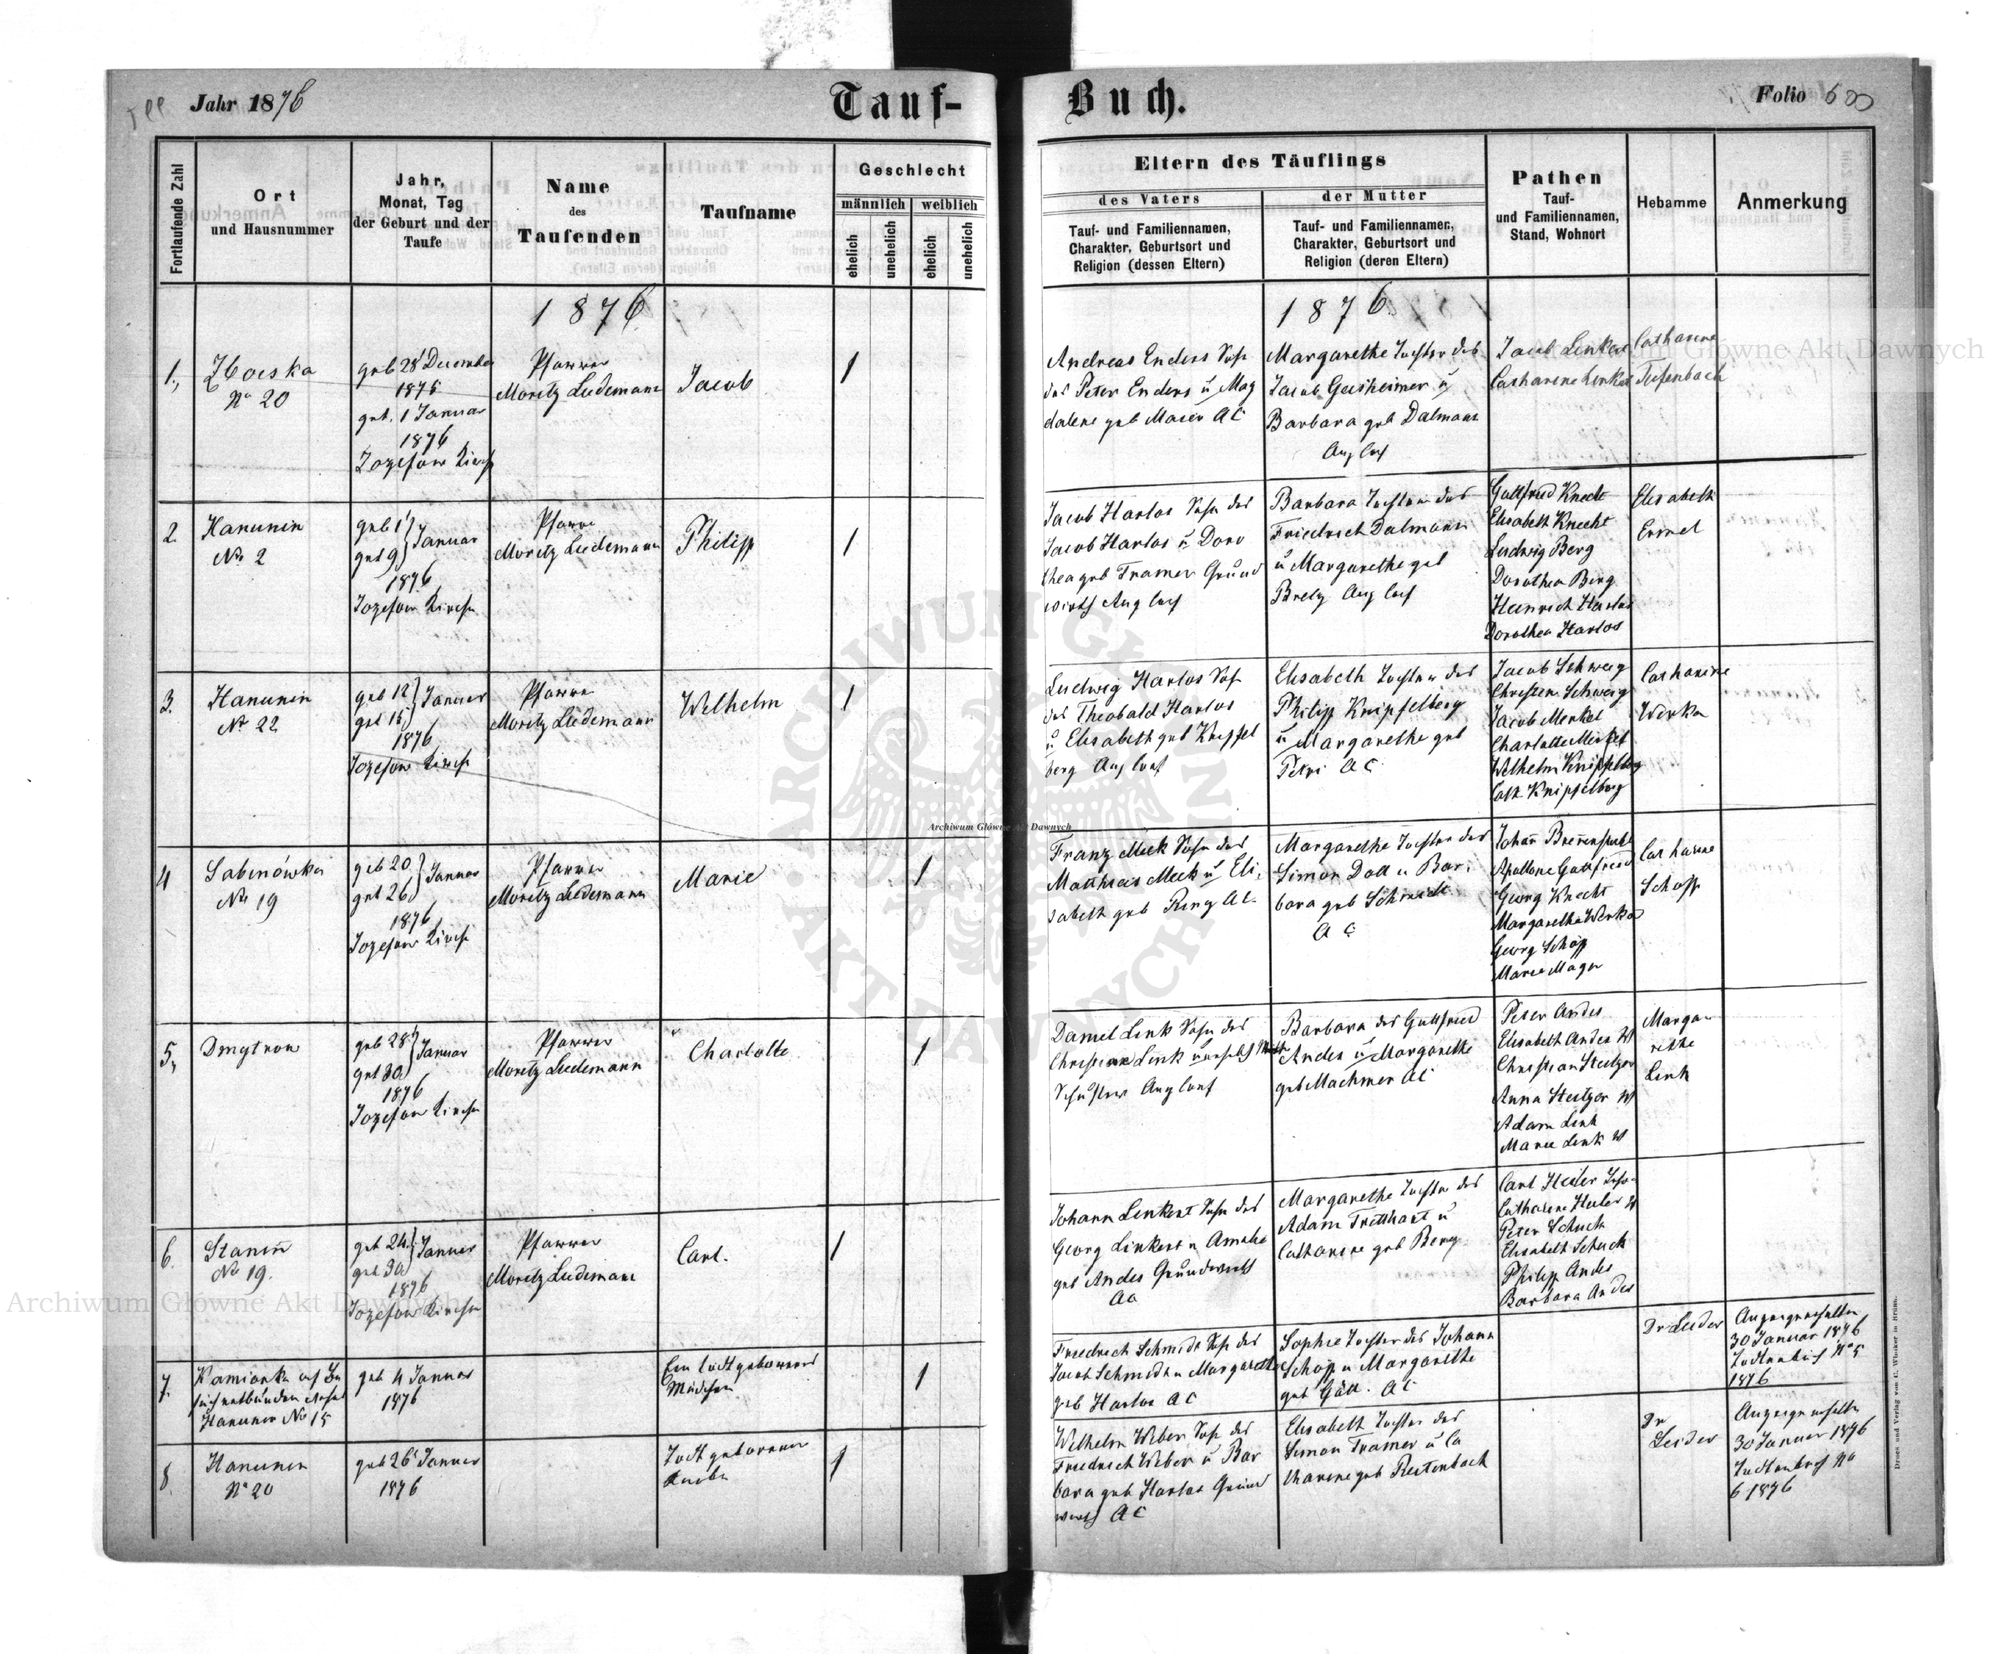 Jahr 1876
Tauf-
Buch.
Folio 600
Fortlaufende Zahl
Ort
und Hausnummer
Jahr,
Monat, Tag
der Geburt und der
Taufe
Name
des
Taufenden
Taufname
Geschlecht
männlich
weiblich
ehelich
unehelich
ehelich
unehelich
Eltern des Täuflings
des Vaters
der Mutter
Tauf- und Familiennamen,
Charakter, Geburtsort und
Religion (dessen Eltern)
Tauf- und Familiennamen,
Charakter, Geburtsort und
Religion (deren Eltern)
Pathen
Tauf-
und Familiennamen,
Stand, Wohnort
Hebamme
Anmerkung
1876
1876
1.,
No 20
geb 28 December
1875
get. 1 Januar
1876
Jozefow Kirche
Pfarrer
Moritz Luedemann
Jacob
1
Andreas Enders Sohn
des Peter Enders u Mag
dalene geb Maier AC
Margarethe Tochter des
Jacob Geisheimer u
Barbara geb Dalmann
Aug Conf
Jacob Linkert
Catharine Linkert
Catharine
Tiefenbach
2.
Hanunin
No 2
geb 1
get 9 } Januar
1876
Jozefow Kirche
Pfarrer
Moritz Luedemann
Philipp
1
Jacob Harlos Sohn des
Jacob Harlos u Doro
thea geb Tramer Grund
wirth Aug Conf
Barbara Tochter des
Friedrich Dalmann
u Margarethe geb
Bretz Aug Conf
Gottfried Knecht
Elisabeth Knecht
Ludwig Berg
Dorothea Berg
Heinrich Harlos
Dorothea Harlos
Elisabeth
Ermel
3.
Hanunin
No 22
geb 12
get 16 } Januar
1876
Jozefow Kirche
Pfarrer
Moritz Luedemann
Wilhelm
1
Ludwig Harlos Sohn
des Theobald Harlos
u Elisabeth geb Knipfel
berg Aug Conf
Elisabeth Tochter des
Philipp Knipfelberg
u Margarethe geb
Petri AC
Jacob Schweig
Christine Schweig
Jacob Merkel
Charlotte Merkel
Wilhelm Knipfelberg
Cath Knipfelberg
Catharine
Werka
4
Sabinówka
No 19
geb 20
get 26 } Januar
1876
Jozefow Kirche
Pfarrer
Moritz Luedemann
Marie
1
Franz Meck Sohn des
Matthias Meck u Eli,
sabeth geb Ring AC
Margarethe Tochter des
Simon Doll u Bar,
bara geb Schmidt
AC
Apollone Gottfried
Georg Knecht
Margaretha Werka
Georg Schöpp
Marie Mager
Catharine
Schöpp
5,
Dmytrow
geb 28
get 30 } Januar
1876
Jozefow Kirche
Pfarrer
Moritz Luedemann
Charlotte
1
Daniel Link Sohn des
Schuster Aug Conf
Barbara des Gottfried
Andes u Margarethe
geb Machmer AC
Peter Andes
Elisabeth Andes W
Anna Steitzer W
Adam Link
Marie Link W
Marga
rethe
Link
6.
Stanin
No 19.
geb 24
get 30 } Januar
1876
Jozefow Kirche
Pfarrer
Moritz Luedemann
Carl.
1
Johann Linkert Sohn des
Georg Linkert u Amalie
geb Andes Grundwirth
AC
Margarethe Tochter des
Adam Tritthart u
Catharine geb Berg
Peter Schuck
Elisabeth Schuck
Philipp Andes
Barbara Andes
7.
Hanunin No 15
geb 4 Januar
1876
Ein todtgeborenes
Mädchen
1
Friedrich Schmidt Sohn des
Jacob Schmidt u Margarethe
geb Harlos AC
Sophie Tochter des Johann
Schöpp u Margarethe
geb Gäll. AC
Dr Leider
30 Januar 1876
No 5
1876
8.
Hanunin
No 20
geb 26 Januar
1876
Todtgeborener
Knabe
1
Wilhelm Weber Sohn des
Friedrich Weber u Bar
bara geb Harlos Grund
wirth AC
Elisabeth Tochter des
Simon Tramer u Ca
tharine geb Reitenbach
Dr
Leider
30 Januar 1876
6 1876
Archiwum Główne Akt Dawnych
Archiwum Główne Akt Dawnych
Archiwum Główne Akt Dawnych
ARCHIWUM GŁÓWNE
AKT DAWNYCH
Druck und Verlag von C. Winiker in Brünn.